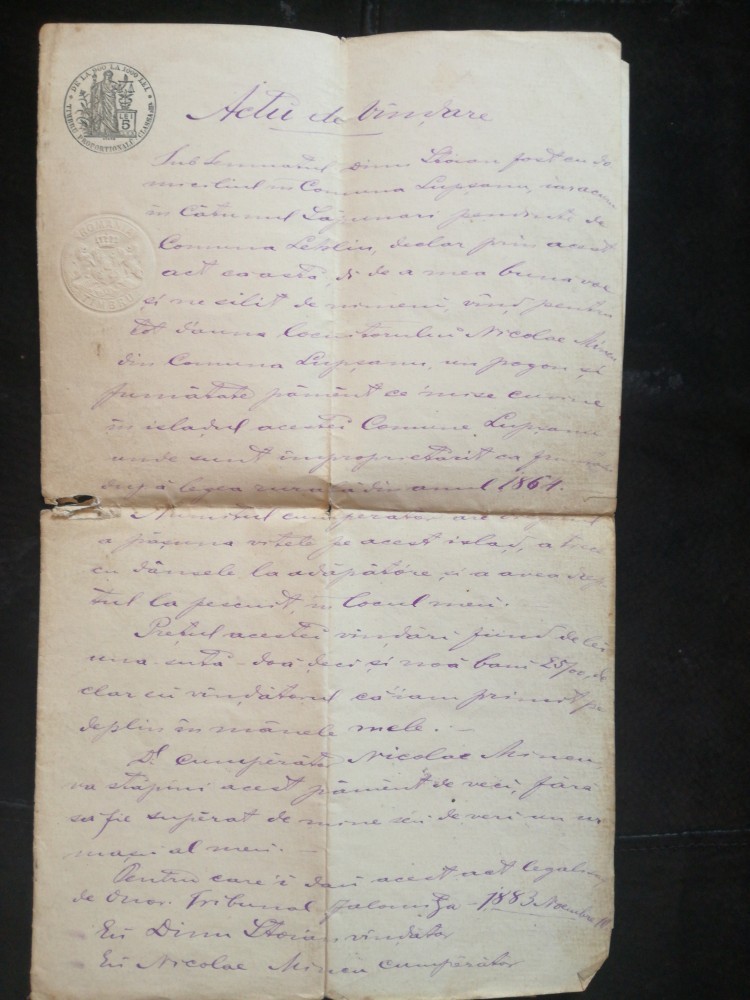 DE LA 500 LA 1000 LEI
LEI
5
TIMBRU PROPORTIONALE CLASSA
TIMBRU
Actu de vîndare
Sub semnatul Dinu Stoian fost cu do
miciliul în Comuna Lupșanu, iar acum
în Cătunul Lăgunari pendinte de
Comuna Lehliu, declar prin acest
act ca astă di de a mea bună voe
și nesilit de nimeni, vînd pentru
tot dauna locuitorului Nicolae Mincu
din Comuna Lupșanu, un pogon și
jumătate pământ ce mise cuvine
în isladul acestei Comune Lupșanu
unde sunt împroprietărit ca
după legea rurală din anul 1864.
Numitul cumpărător are
a pășuna vitele pe acest islaz, a trece
cu dânsele la adăpătore și a avea drep
tul la pescuit în locul meu.
Prețul acestei vindări fiind de lei
una sută doă deci și noă bani 25, de
clar eŭ vîndĕtorul că iam primit pe
deplin în mânele mele. —
Dl cumpĕrător Nicolae Mincu,
va stăpîni acest pămênt de veci, fără
să fie supĕrat de mine seŭ de veri un ur
maș al meu. —
Pentru care i daŭ acest act
de Onor. Tribunal Jalomița — 1883 Noembre
Eŭ Dinu Stoian vîndător
Eŭ Nicolae Mincu cumpĕrător